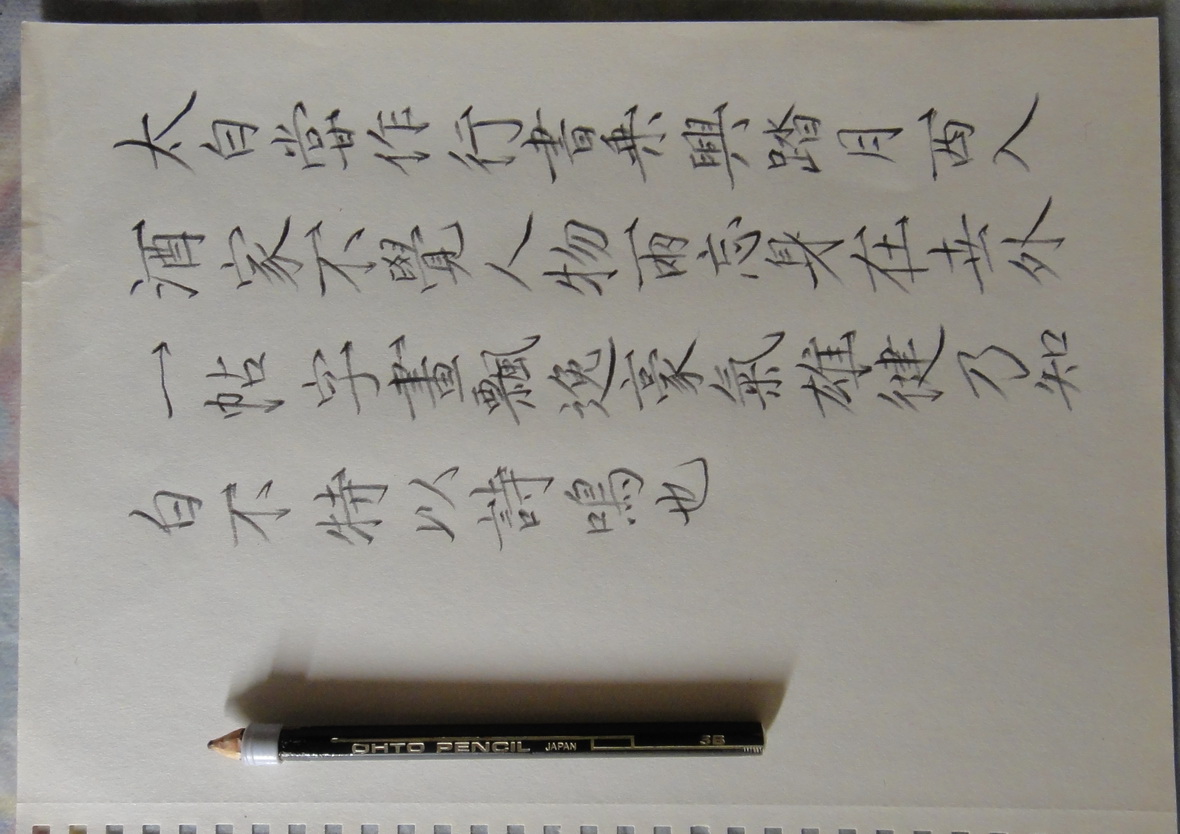 太白嘗作行書乘興踏月西入
酒家不覺人物兩忘身在世外
一帖字畫飄逸豪氣雄健乃知
白不特以詩鳴也
OHTO PENCIL JAPAN 3B